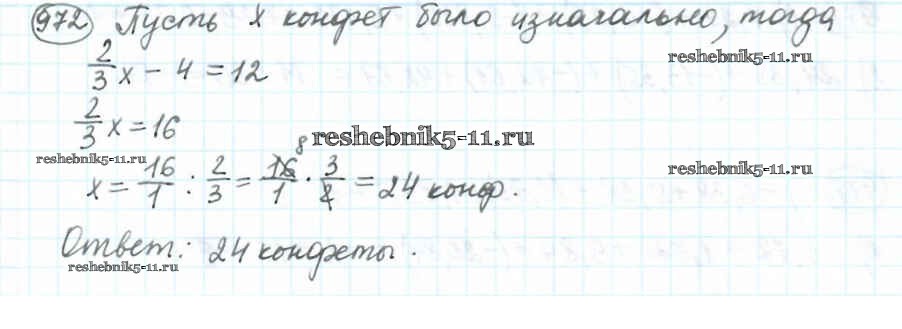 972 Пусть x конфет было изначально, тогда
2/3 x − 4 = 12
reshebnik5-11.ru
2/3 x = 16
reshebnik5-11.ru
reshebnik5-11.ru
reshebnik5-11.ru
8
x = 16/1 : 2/3 = 16/1 · 3/2 = 24 конф.
Ответ: 24 конфеты.
reshebnik5-11.ru